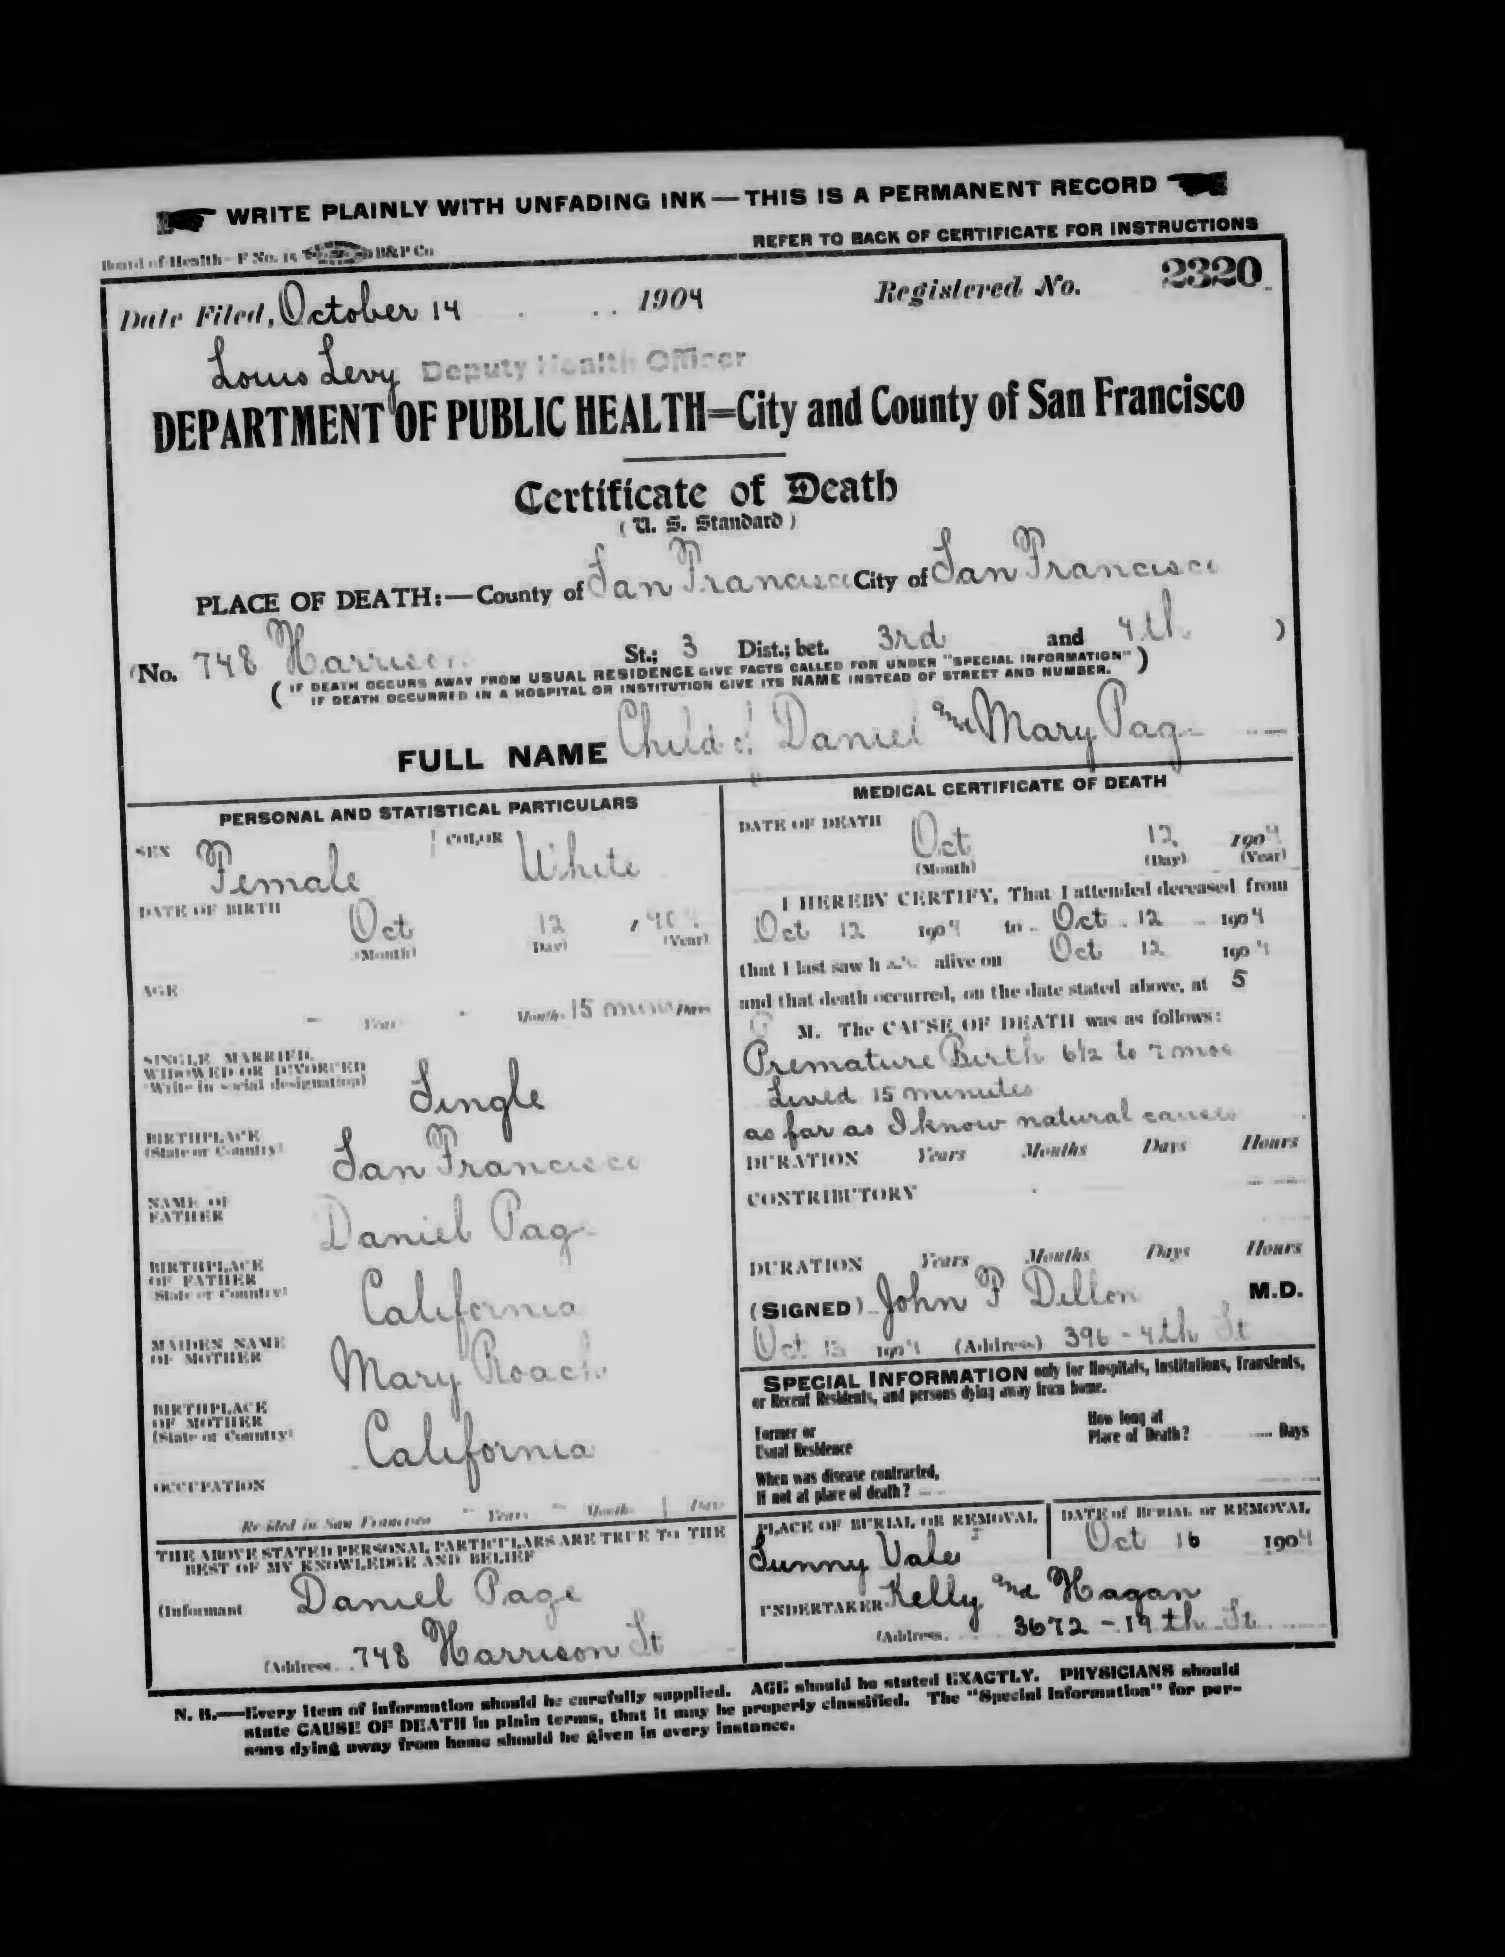 WRITE PLAINLY WITH UNFADING INK — THIS IS A PERMANENT RECORD
Board of Health—F No. 15 B&P Co
REFER TO BACK OF CERTIFICATE FOR INSTRUCTIONS
Date Filed, October 14 1904 Registered No. 2320
Louis Levy Deputy Health Officer
DEPARTMENT OF PUBLIC HEALTH=City and County of San Francisco
Certificate of Death
(U. S. Standard)
PLACE OF DEATH:—County of San Francisco City of San Francisco
(No. 748 Harrison St.; 3 Dist.; bet. 3rd and 4th )
( IF DEATH OCCURS AWAY FROM USUAL RESIDENCE GIVE FACTS CALLED FOR UNDER "SPECIAL INFORMATION" )
IF DEATH OCCURRED IN A HOSPITAL OR INSTITUTION GIVE ITS NAME INSTEAD OF STREET AND NUMBER.
FULL NAME Child of Daniel and Mary Page
PERSONAL AND STATISTICAL PARTICULARS
SEX Female COLOR White
DATE OF BIRTH Oct 12 1904
(Month) (Day) (Year)
AGE
Years Months 15 mins Days
SINGLE, MARRIED,
WIDOWED OR DIVORCED
(Write in social designation) Single
BIRTHPLACE
(State or Country) San Francisco
NAME OF
FATHER Daniel Page
BIRTHPLACE
OF FATHER
(State or Country) California
MAIDEN NAME
OF MOTHER Mary Roach
BIRTHPLACE
OF MOTHER
(State or Country) California
OCCUPATION
Resided in San Francisco Years Months Days
THE ABOVE STATED PERSONAL PARTICULARS ARE TRUE TO THE
BEST OF MY KNOWLEDGE AND BELIEF
(Informant Daniel Page
(Address 748 Harrison St
MEDICAL CERTIFICATE OF DEATH
DATE OF DEATH Oct 12 1904
(Month) (Day) (Year)
I HEREBY CERTIFY, That I attended deceased from
Oct 12 1904 to Oct 12 1904
that I last saw h alive on Oct 12 1904
and that death occurred, on the date stated above, at 5
M. The CAUSE OF DEATH was as follows:
Premature Birth 6½ to 7 mos
Lived 15 minutes
as far as I know natural causes
DURATION Years Months Days Hours
CONTRIBUTORY
DURATION Years Months Days Hours
(SIGNED) John P Dillon M.D.
Oct 13 1904 (Address) 396 - 4th St
SPECIAL INFORMATION only for Hospitals, Institutions, Transients,
or Recent Residents, and persons dying away from home.
Former or
Usual Residence
How long at
Place of Death? Days
When was disease contracted,
If not at place of death?
PLACE OF BURIAL OR REMOVAL
Sunny Vale
DATE of BURIAL or REMOVAL
Oct 16 1904
UNDERTAKER Kelly and Hagan
(Address 3672 - 19th St
N. B.—Every item of information should be carefully supplied. AGE should be stated EXACTLY. PHYSICIANS should
state CAUSE OF DEATH in plain terms, that it may be properly classified. The "Special Information" for per-
sons dying away from home should be given in every instance.